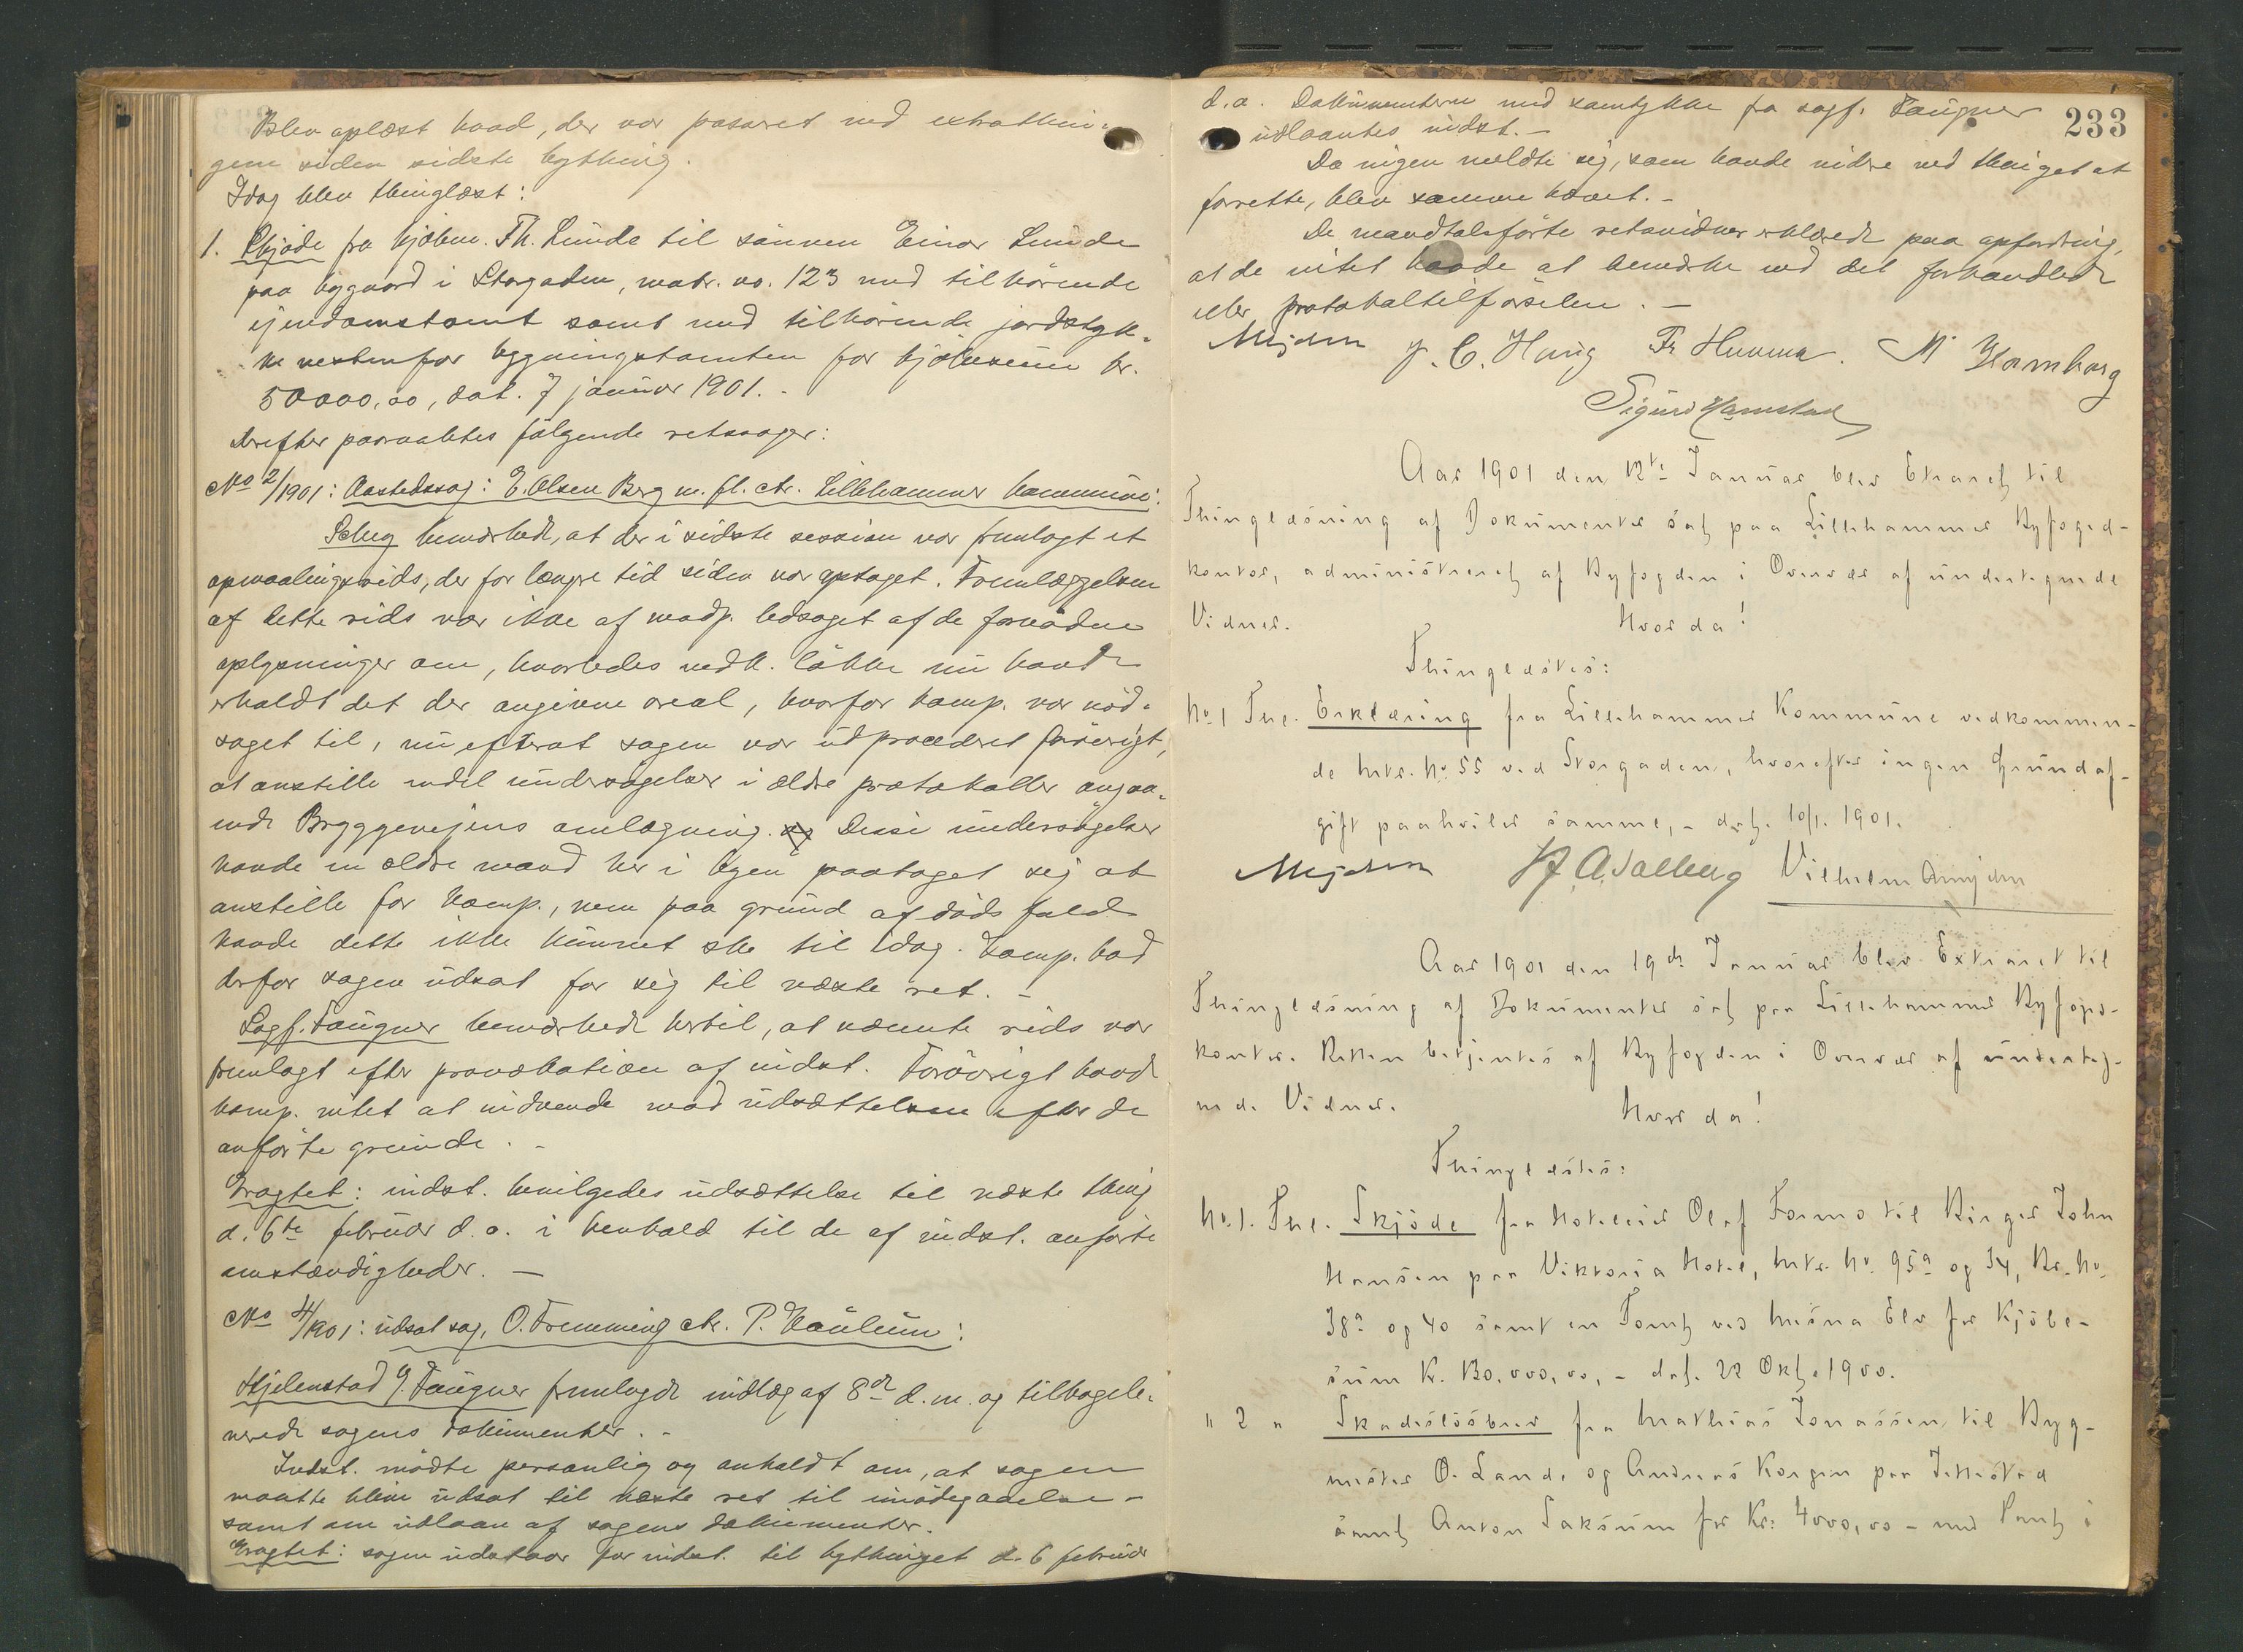 Blev oplæst hvad, der var passeret ved extrathin-
gene siden sidste bything.
Idag blev thinglæst:
1. Skjøde fra kjøbm. Th. Lunde til sønnen Einar Lunde
paa bygaard i Storgaden, matr. no. 123 med tilhørende
ejendomstomt samt med tilhørende jordstyk-
ke vestenfor bygningstomten for kjøbesum kr.
50000,00, dat. 7 januar 1901. -
Derefter paaraabtes følgende retssager:
No 2/1901: Aastedssag: E. Olsen Berg m. fl. ctr. Lillehammer kommune:
bemærkede, at der i sidste session var fremlagt et
opmaalingsrids, der for længre tid siden var optaget. Fremlæggelsen
af dette rids var ikke af modp. ledsaget af de fornødne
oplysninger om, hvorledes vedk. løkke nu havde
erholdt det der angivne areal, hvorfor komp. var nød-
saget til, nu efterat sagen var udproceduret forøvrigt,
at anstille endel undersøgelser i ældre protokoller angaa-
ende Bryggevejens omlægning. Disse undersøgelser
havde en ældre mand her i byen paataget sig at
anstille for komp., men paa grund af dødsfald
havde dette ikke kunnet ske til idag. Komp. bad
derfor sagen udsat for sig til næste ret. -
Sagf. Faugner bemærkede hertil, at nævnte rids var
fremlagt efter provokation af indst. Forøvrigt havde
komp. intet at indvende mod udsættelsen efter de
anførte grunde. -
Eragtet: indst. bevilgedes udsættelse til næste thing
d. 6te februar d. a. i henhold til de af indst. anførte
omstændigheder. -
No 4/1901: udsat sag, O. Fremming ctr. P. Haulum:
Hjelmstad f. Faugner fremlagde indlæg af 8de d. m. og tilbagele-
verede sagens dokumenter. -
Indst. mødte personlig og anholdt om, at sagen
maatte blive udsat til næste ret til imødegaaelse -
samt om udlaan af sagens dokumenter.
Eragtet: sagen udstaar for indst. til bythinget d. 6 februar
233
d. a. Dokumenterne med samtykke fra sagf. Faugner
udlaantes indst. -
Da ingen meldte sig, som havde videre ved thinget at
forrette, blev samme hævet. -
De mandtalsførte retsvidner erklærede paa opfordring,
at de intet havde at bemærke ved det forhandlede
eller protokoltilførselen. -
Mejdell J. C. Haug Fr. Hammer. M Hamborg
Sigurd Hamstad
Aar 1901 den 12te Januar blev Extraret til
Thinglæsning af Dokumenter sat paa Lillehammer Byfoged-
kontor, administreret af Byfogden i Overvær af undertegnede
Vidner. Hvor da!
Thinglæstes:
No 1 Thl. Erklæring fra Lillehammer Kommune vedkommen-
de Mtr. No 55 ved Storgaden, hvorefter ingen Grundaf-
gift paahviler samme, - dat. 10/1. 1901.
Mejdell A. Salberg Vilhelm
Aar 1901 den 19de Januar blev Extraret til
Thinglæsning af Dokumenter sat paa Lillehammer Byfogd-
kontor. Retten betjentes af Byfogden i Overvær af underteg-
nede Vidner. Hvor da!
Thinglæstes:
No 1. Thl. Skjøde fra Hoteleier Olaf Formo til Birger John
Hansen paa Viktoria Hotel, Mtr. No 95a og 34, Br. No
38a og 40 samt en Tomt ved Mesna Elv for Kjøbe-
sum Kr. 130,000,00, - dat. 22 Okt. 1900.
" 2 " Skadesløsbrev fra Mathias Jonassen til Byg-
mester O. Lande og Andreas Korgen paa Jettestad
samt Anton Saksum for Kr. 4000,00 - med Pant i